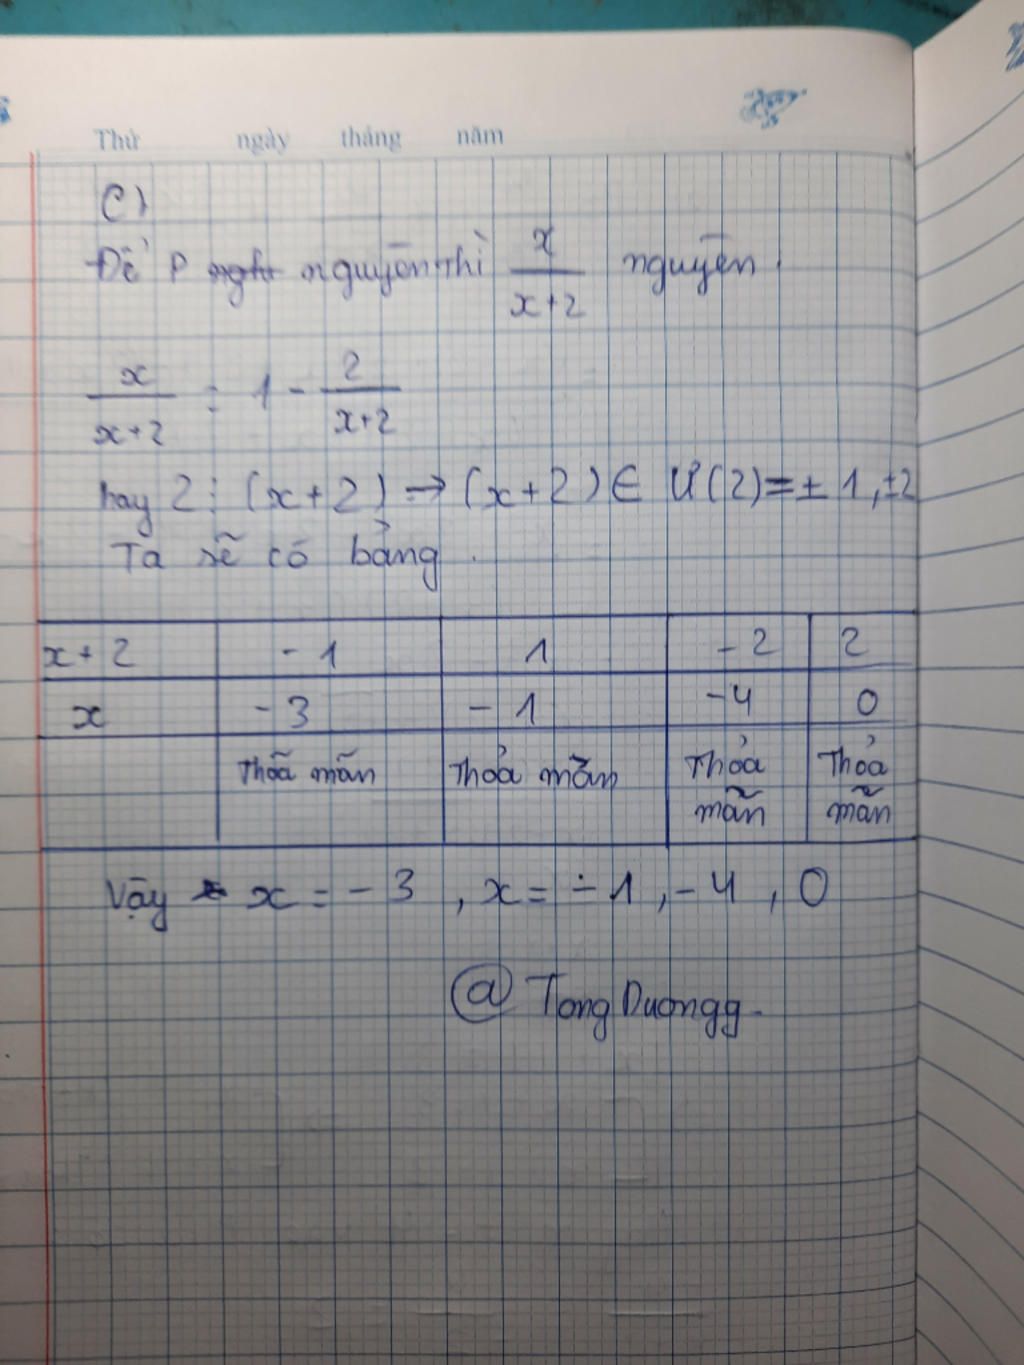 Thứ ngày tháng năm
C)
Để P nguyên thì x/(x+2) nguyên.
x/(x+2) = 1 - 2/(x+2)
hay 2 ⋮ (x+2) → (x+2) ∈ Ư(2) = ±1, ±2
Ta sẽ có bảng.
x+2 -1 1 -2 2
x -3 -1 -4 0
Thõa mãn Thỏa mãn Thỏa mãn Thỏa mãn
Vậy x = -3, x = -1, -4, 0
@ Tong Duongg.